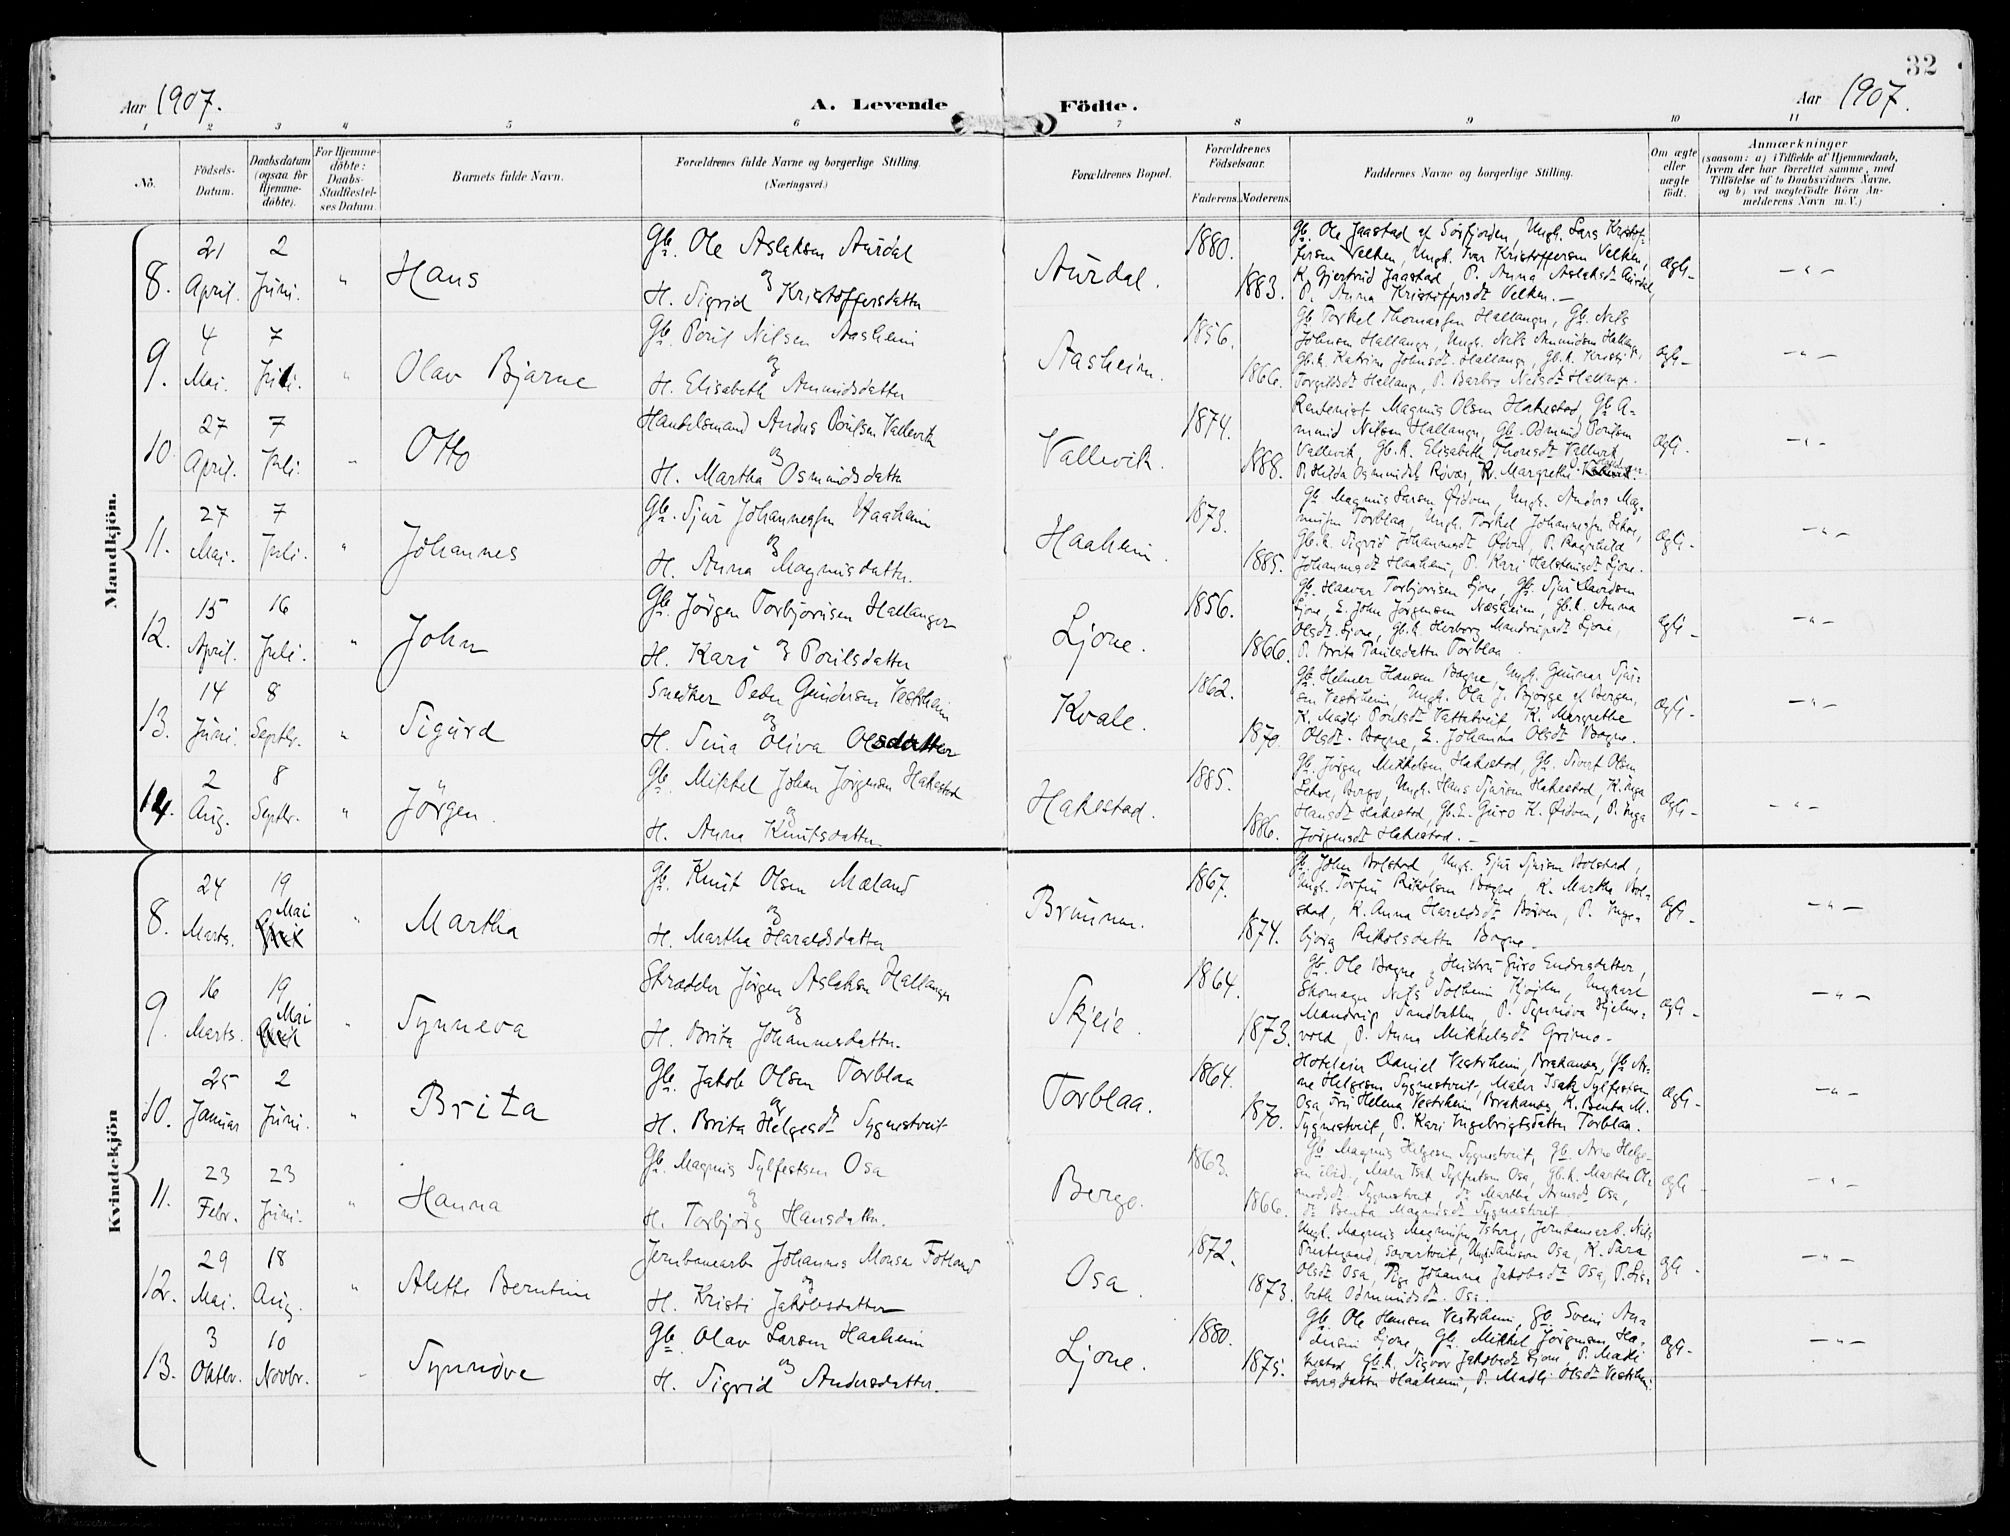 32
Aar 1907.
A. Levende Födte.
Aar 1907.
1 2 3 4 5 6 7 8 9 10 11
No.
Födsels-
Datum.
Daabsdatum
(ogsaa for
Hjemme-
döbte).
For Hjemme-
döbte:
Daabs-
Stadfæstel-
ses Datum.
Barnets fulde Navn.
Forældrenes fulde Navne og borgerlige Stilling.
(Næringsvei.)
Forældrenes Bopæl.
Forældrenes
Födselsaar.
Faderens. Moderens.
Faddernes Navne og borgerlige Stilling.
Om ægte
eller
uægte
født.
Anmærkninger
(saasom: a) i Tilfælde af Hjemmedaab,
hvem der har forrettet samme, med
Tilföielse af to Daabsvidners Navne,
og b) ved uægtefødte Börn An-
melderens Navn m. V.)
Mandkjön.
8. 21 April. 2 Juni. " Hans
Gb. Ole Aslaksen Aurdal
og
H. Sigrid Kristoffersdatter
Aurdal. 1880. 1883.
Gb. Ole Jaastad af Sörfjorden, Ungk. Lars Kristof-
fersen Velken, Ungk. Ivar Kristoffersen Velken,
K. Gjertrud Jaastad, P. Anna Aslaksdt Aurdal,
P. Anna Kristoffersdt Velken. —
Ægte — " —
9. 4 Mai. 7 Juli. " Olav Bjarne
Gb. Poul Nilsen Aasheim
og
H. Elisabeth Amundsdatter
Aasheim. 1856. 1866.
Gb. Torkel Thomassen Hallanger, Gb. Nils
Johnsen Hallanger, Ungk. Nils Amundsen Hallang.,
Gb.k. Katrine Johnsdt. Hallanger, Gb.k. Kristi
Torgilsdt Hallang., P. Barbro Nilsdt Hallange.
Ægte — " —
10. 27 April. 7 Juli. " Otto
Handelsmand Anders Poulsen Vallevik
og
H. Martha Osmundsdatter
Vallevik. 1874. 1888.
Rentenist Magnus Olsen Hakestad, Gb. A-
mund Nilsen Hallanger, Gb. Osmund Poulsen
Vallevik, Gb.k. Elisabeth Thoresdt Vallevik,
P. Hilda Osmundsdt Røvær, K. Margrethe
Ægte. — " —
11. 27 Mai. 7 Juli. " Johannes
Gb. Sjur Johannessen Haaheim
og
H. Anna Magnusdatter.
Haaheim. 1873. 1885.
Gb. Magnus Larsen Øidven, Ungk. Anders Mag-
nusen Torblaa, Ungk. Torkel Johannessen
Gb.k. Sigrid Johannesdt Øidven, P. Ragnhild
Johannesdt Haaheim, P. Kari Halsteinsdt Ljone.
Ægte. — " —
12. 15 April. 16 Juli. " John
Gb. Jörgen Torbjörnsen Hallanger
og
H. Kari Poulsdatter
Ljone. 1856. 1866.
Gb. Haavar Torbjörnsen Ljone, Gb. Sjur Davidsen
Ljone, E. John Jörgensen Næsheim, Gb.k. Anna
Olsdt. Ljone, Gb.k. Herborg Mandrupsdt Ljone,
P. Brita Paulsdatter Torblaa.
Ægte — " —
13. 14 Juni. 8 Septbr. " Sigurd
Snedker Peder Gundersen Vestrheim
og
H. Sina Oliva Olsdatter
Kvale. 1862. 1870.
Gb. Helmer Hansen Bagne, Ungk. Gunnar Sjur-
sen Vestrheim, Ungk. Ola J. Bjørge af Bergen,
K. Madli Poulsdt Vattetveit, K. Margrethe
Olsdt. Bagne, E. Johanna Olsdt Bagne.
Ægte. — " —
14. 2 Aug. 8 Septbr. " Jörgen.
Gb. Mikkel Johan Jörgensen Hakestad
og
H. Anna Knutsdatter.
Hakestad. 1885. 1886.
Gb. Jörgen Mikkelsen Hakestad, Gb. Sivert Olsen
Bergo, Ungk. Hans Sjursen Hakestad, K. Inga
Hansdt Hakestad, Gb.E. Guro K. Øidven, P. Inga
Jörgensdt Hakestad. —
Ægte — " —
Kvindekjön
8. 24 Marts. 19 Mai " Martha
Gb. Knut Olsen Mæland
og
H. Martha Haraldsdatter
Brunnen. 1867. 1874.
Gb. John Bolstad, Ungk. Sjur Sjursen Bolstad,
Ungk. Torfin Rikolsen Bagne, K. Martha Bol-
stad, K. Anna Haraldsdt Börven, P. Inge-
björg Rikolsdatter Bagne.
Ægte — " —
9. 16 Marts. 19 Mai " Synneva
Skrædder Jörgen Aslaksen Hallanger
og
H. Brita Johannesdatter.
Skjeie. 1864. 1873.
Gb. Ole Bagne, Hustru Guro Endresdatter,
Skomager Nils Solheim Kjöilen, Ungkarl
Mandrup Sandbakken, P. Synnöva Hjelme-
vold, P. Anna Mikkelsdt Grimo.
Ægte — " —
10. 25 Januar 2 Juni. " Brita
Gb. Jakob Olsen Torblaa
og
H. Brita Helgesdt Sygnestveit
Torblaa. 1864. 1870.
Hoteleier Daniel Vestrheim, Brakanes, Gb. Ar-
ne Helgesen Sygnestveit, Maler Isak Sylfestsen
Osa, Fru Helena Vestrheim Brakanes, K. Benta M.
Sygnestveit, P. Kari Ingebrigtsdatter Torblaa.
Ægte — " —
11. 23 Febr. 23 Juni. " Hanna
Gb. Magnus Sylfestsen Osa
og
H. Torbjörg Hansdatter.
Bergo. 1863. 1866.
Gb. Magnus Helgesen Sygnestveit, Gb. Arne Helge-
sen ibid., Maler Isak Sylfestsen Osa, Gb.k. Martha Ol-
modsdt. Sygnestveit, dt. Martha Arnesdt Osa,
dt. Benta Magnusdt Sygnestveit.
Ægte — " —
12. 29 Mai. 18 Aug. " Alette Berntine
Jernbanearb. Johannes Monsen Fotland
og
H. Kristi Jakobsdatter
Osa. 1872. 1873.
Ungk. Magnus Magnussen Isberg, Jernbanearb. Nils
Osa, K. Sara
Olsdt Osa, Johanna Jakobsdt Osa, P. Lis-
beth Odmundsdt. Osa.
Ægte — " —
13. 3 Oktbr. 10 Novbr. " Synnöve
Gb. Olav Larsen Haaheim
og
H. Sigrid Andersdatter.
Ljone. 1880. 1875.
Gb. Ole Hansen Vestrheim, Gb. Svein An-
dersen Ljone, Gb. Mikkel Jörgensen Ha-
kestad, Gb.k. Sigvor Jakobsdt Ljone, P. Madli
Larsdatter Haaheim, P. Madli Olsdt Vestrheim.
Ægte — " —